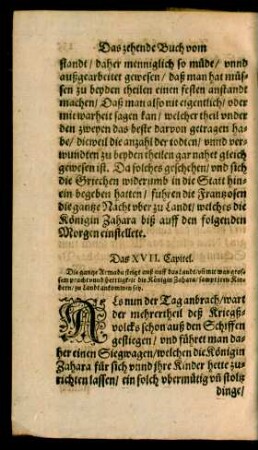 Das zehende Buch vom
standt/ daher menniglich so müde/ vnnd
außgearbeitet gewesen/ daß man hat müs-
sen zu beyden theilen einen festen anstandt
machen/ Daß man also nit eigentlich/ oder
mit warheit sagen kan/ welcher theil vnder
den zweyen das beste daruon getragen ha-
be/ dieweil die anzahl der todten/ vnnd ver-
wundten zu beyden theilen gar nahet gleich
gewesen ist. Da solches geschehen/ vnd sich
die Griechen widerumb in die Statt hin-
ein begeben hatten/ fuhren die Frantzosen
die gantze Nacht vber zu Landt/ welches die
Königin Zahara biß auff den folgenden
Morgen einstellete.
Das XVII. Capitel.
Die gantze Armada steigt auß auff das Landt/ vñ mit was gros-
sem pracht vnd herrligkeit die Königin Zahara/ sampt jren Kin-
dern/ zu Landt ankommen sey.
ALs nun der Tag anbrach/ wart
der mehrertheil deß Kriegß-
volcks schon auß den Schiffen
gestiegen/ vnd führet man da-
her einen Siegwagen/ welchen die Königin
Zahara für sich vnnd jhre Kinder hette zu-
richten lassen/ ein solch vbermütig vñ stoltz
dinge/